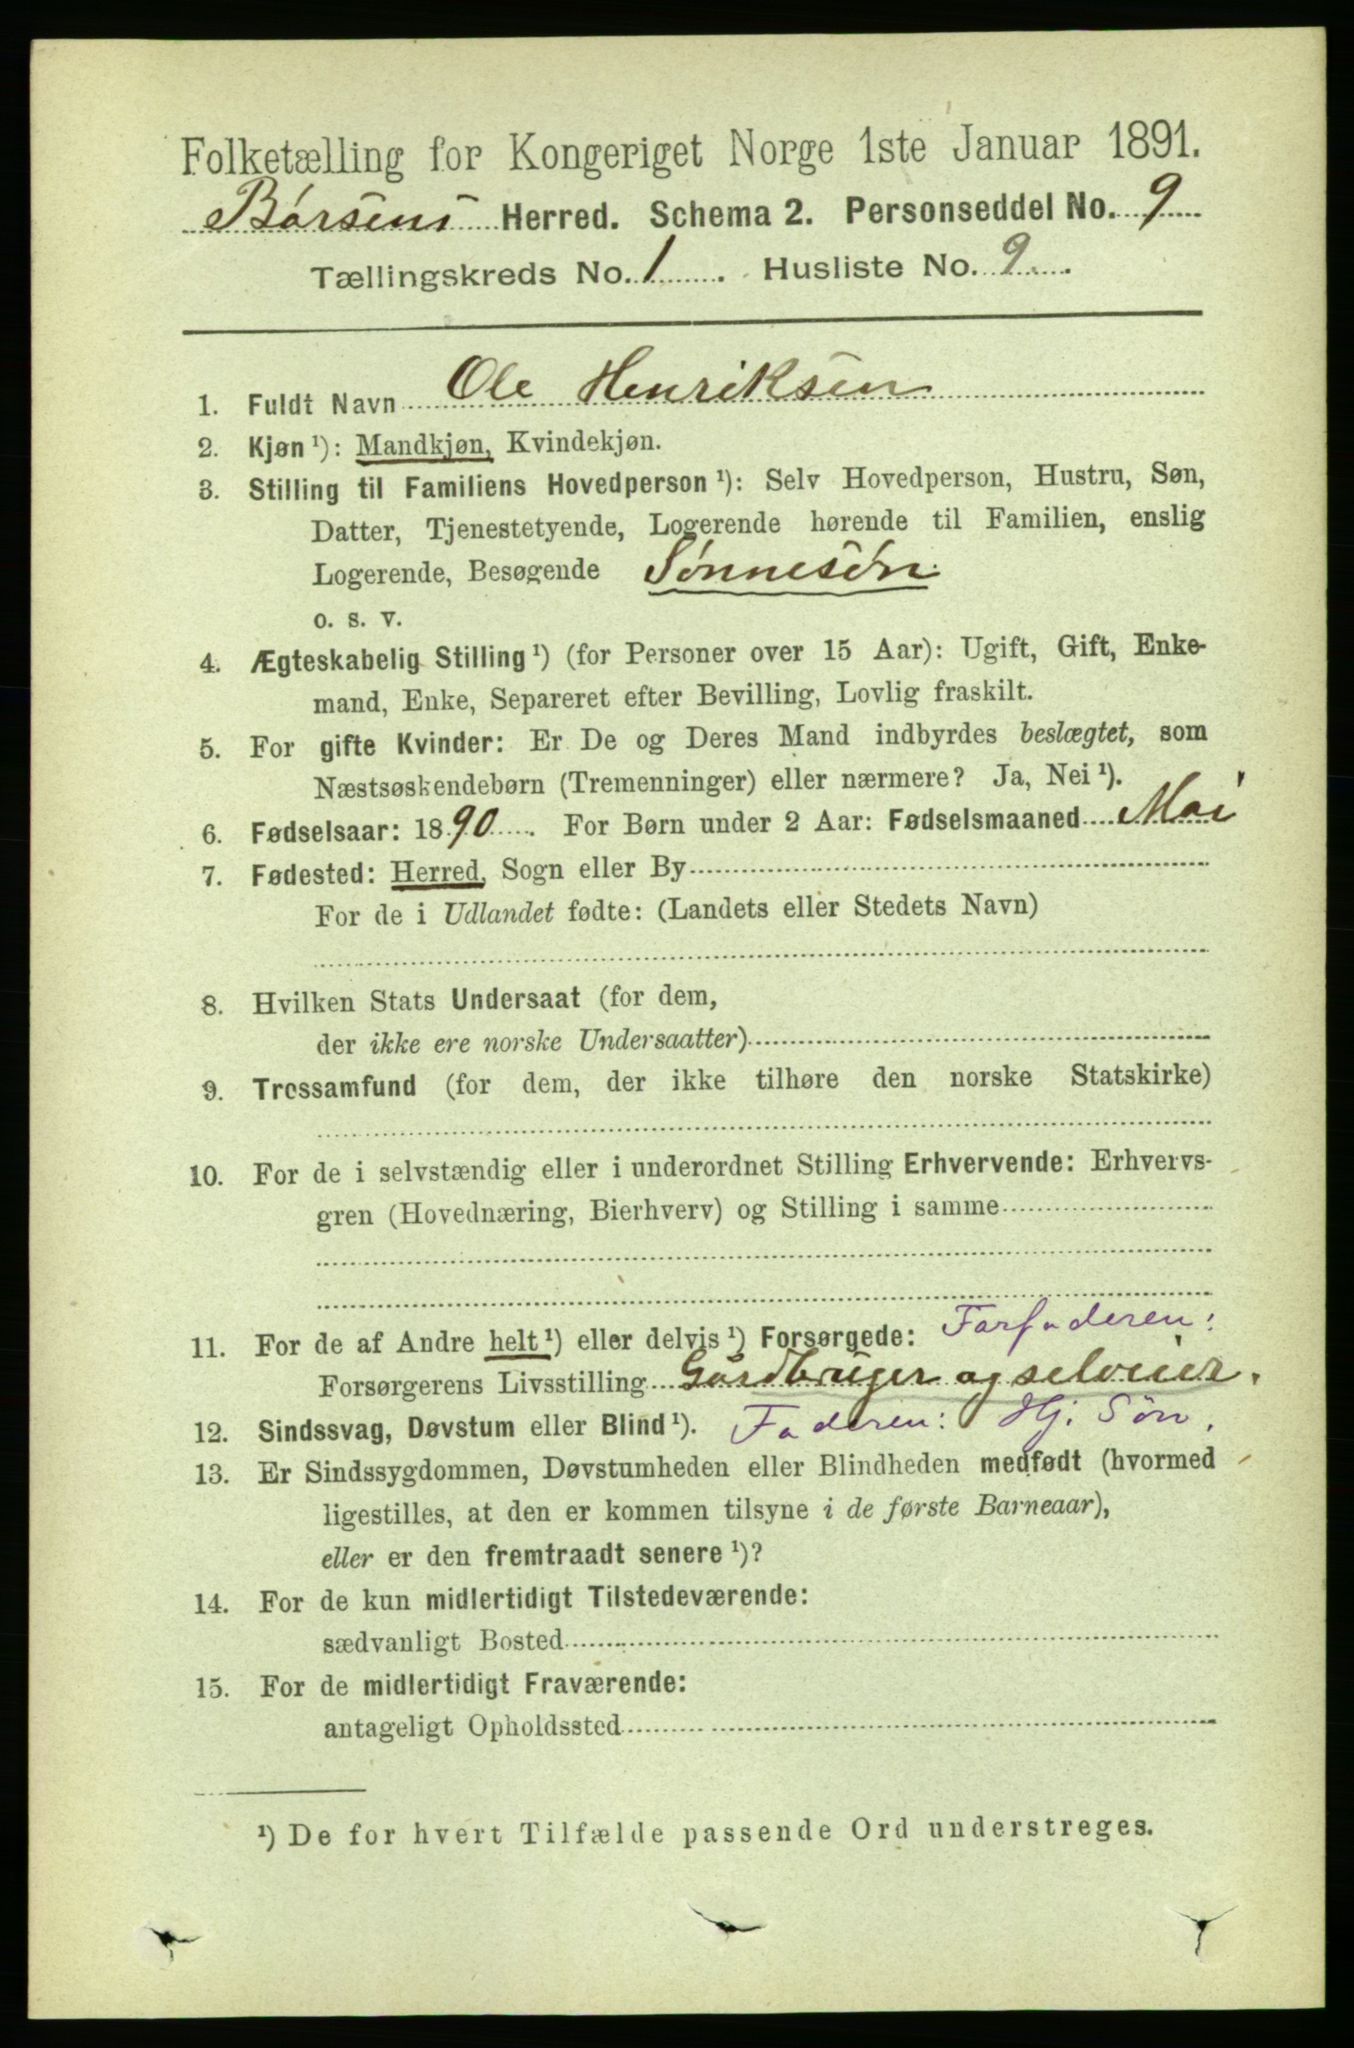 Folketælling for Kongeriget Norge 1ste Januar 1891.
Børsens Herred. Schema 2. Personseddel No. 9
Tællingskreds No. 1. Husliste No. 9.
1. Fuldt Navn Ole Henriksen
2. Kjøn ¹): Mandkjøn, Kvindekjøn.
3. Stilling til Familiens Hovedperson ¹): Selv Hovedperson, Hustru, Søn,
Datter, Tjenestetyende, Logerende hørende til Familien, enslig
Logerende, Besøgende Sønnesøn
o. s. v.
4. Ægteskabelig Stilling ¹) (for Personer over 15 Aar): Ugift, Gift, Enke-
mand, Enke, Separeret efter Bevilling, Lovlig fraskilt.
5. For gifte Kvinder: Er De og Deres Mand indbyrdes beslægtet, som
Næstsøskendebørn (Tremenninger) eller nærmere? Ja, Nei ¹).
6. Fødselsaar: 1890. For Børn under 2 Aar: Fødselsmaaned Mai
7. Fødested: Herred, Sogn eller By
For de i Udlandet fødte: (Landets eller Stedets Navn)
8. Hvilken Stats Undersaat (for dem,
der ikke ere norske Undersaatter)
9. Trossamfund (for dem, der ikke tilhøre den norske Statskirke)
10. For de i selvstændig eller i underordnet Stilling Erhvervende: Erhvervs-
gren (Hovednæring, Bierhverv) og Stilling i samme
11. For de af Andre helt ¹) eller delvis ¹) Forsørgede: Farfaderen:
Forsørgerens Livsstilling Gårdbruger og selveier.
12. Sindssvag, Døvstum eller Blind ¹). Faderen: Hj. Søn.
13. Er Sindssygdommen, Døvstumheden eller Blindheden medfødt (hvormed
ligestilles, at den er kommen tilsyne i de første Barneaar),
eller er den fremtraadt senere ¹)?
14. For de kun midlertidigt Tilstedeværende:
sædvanligt Bosted
15. For de midlertidigt Fraværende:
antageligt Opholdssted
¹) De for hvert Tilfælde passende Ord understreges.